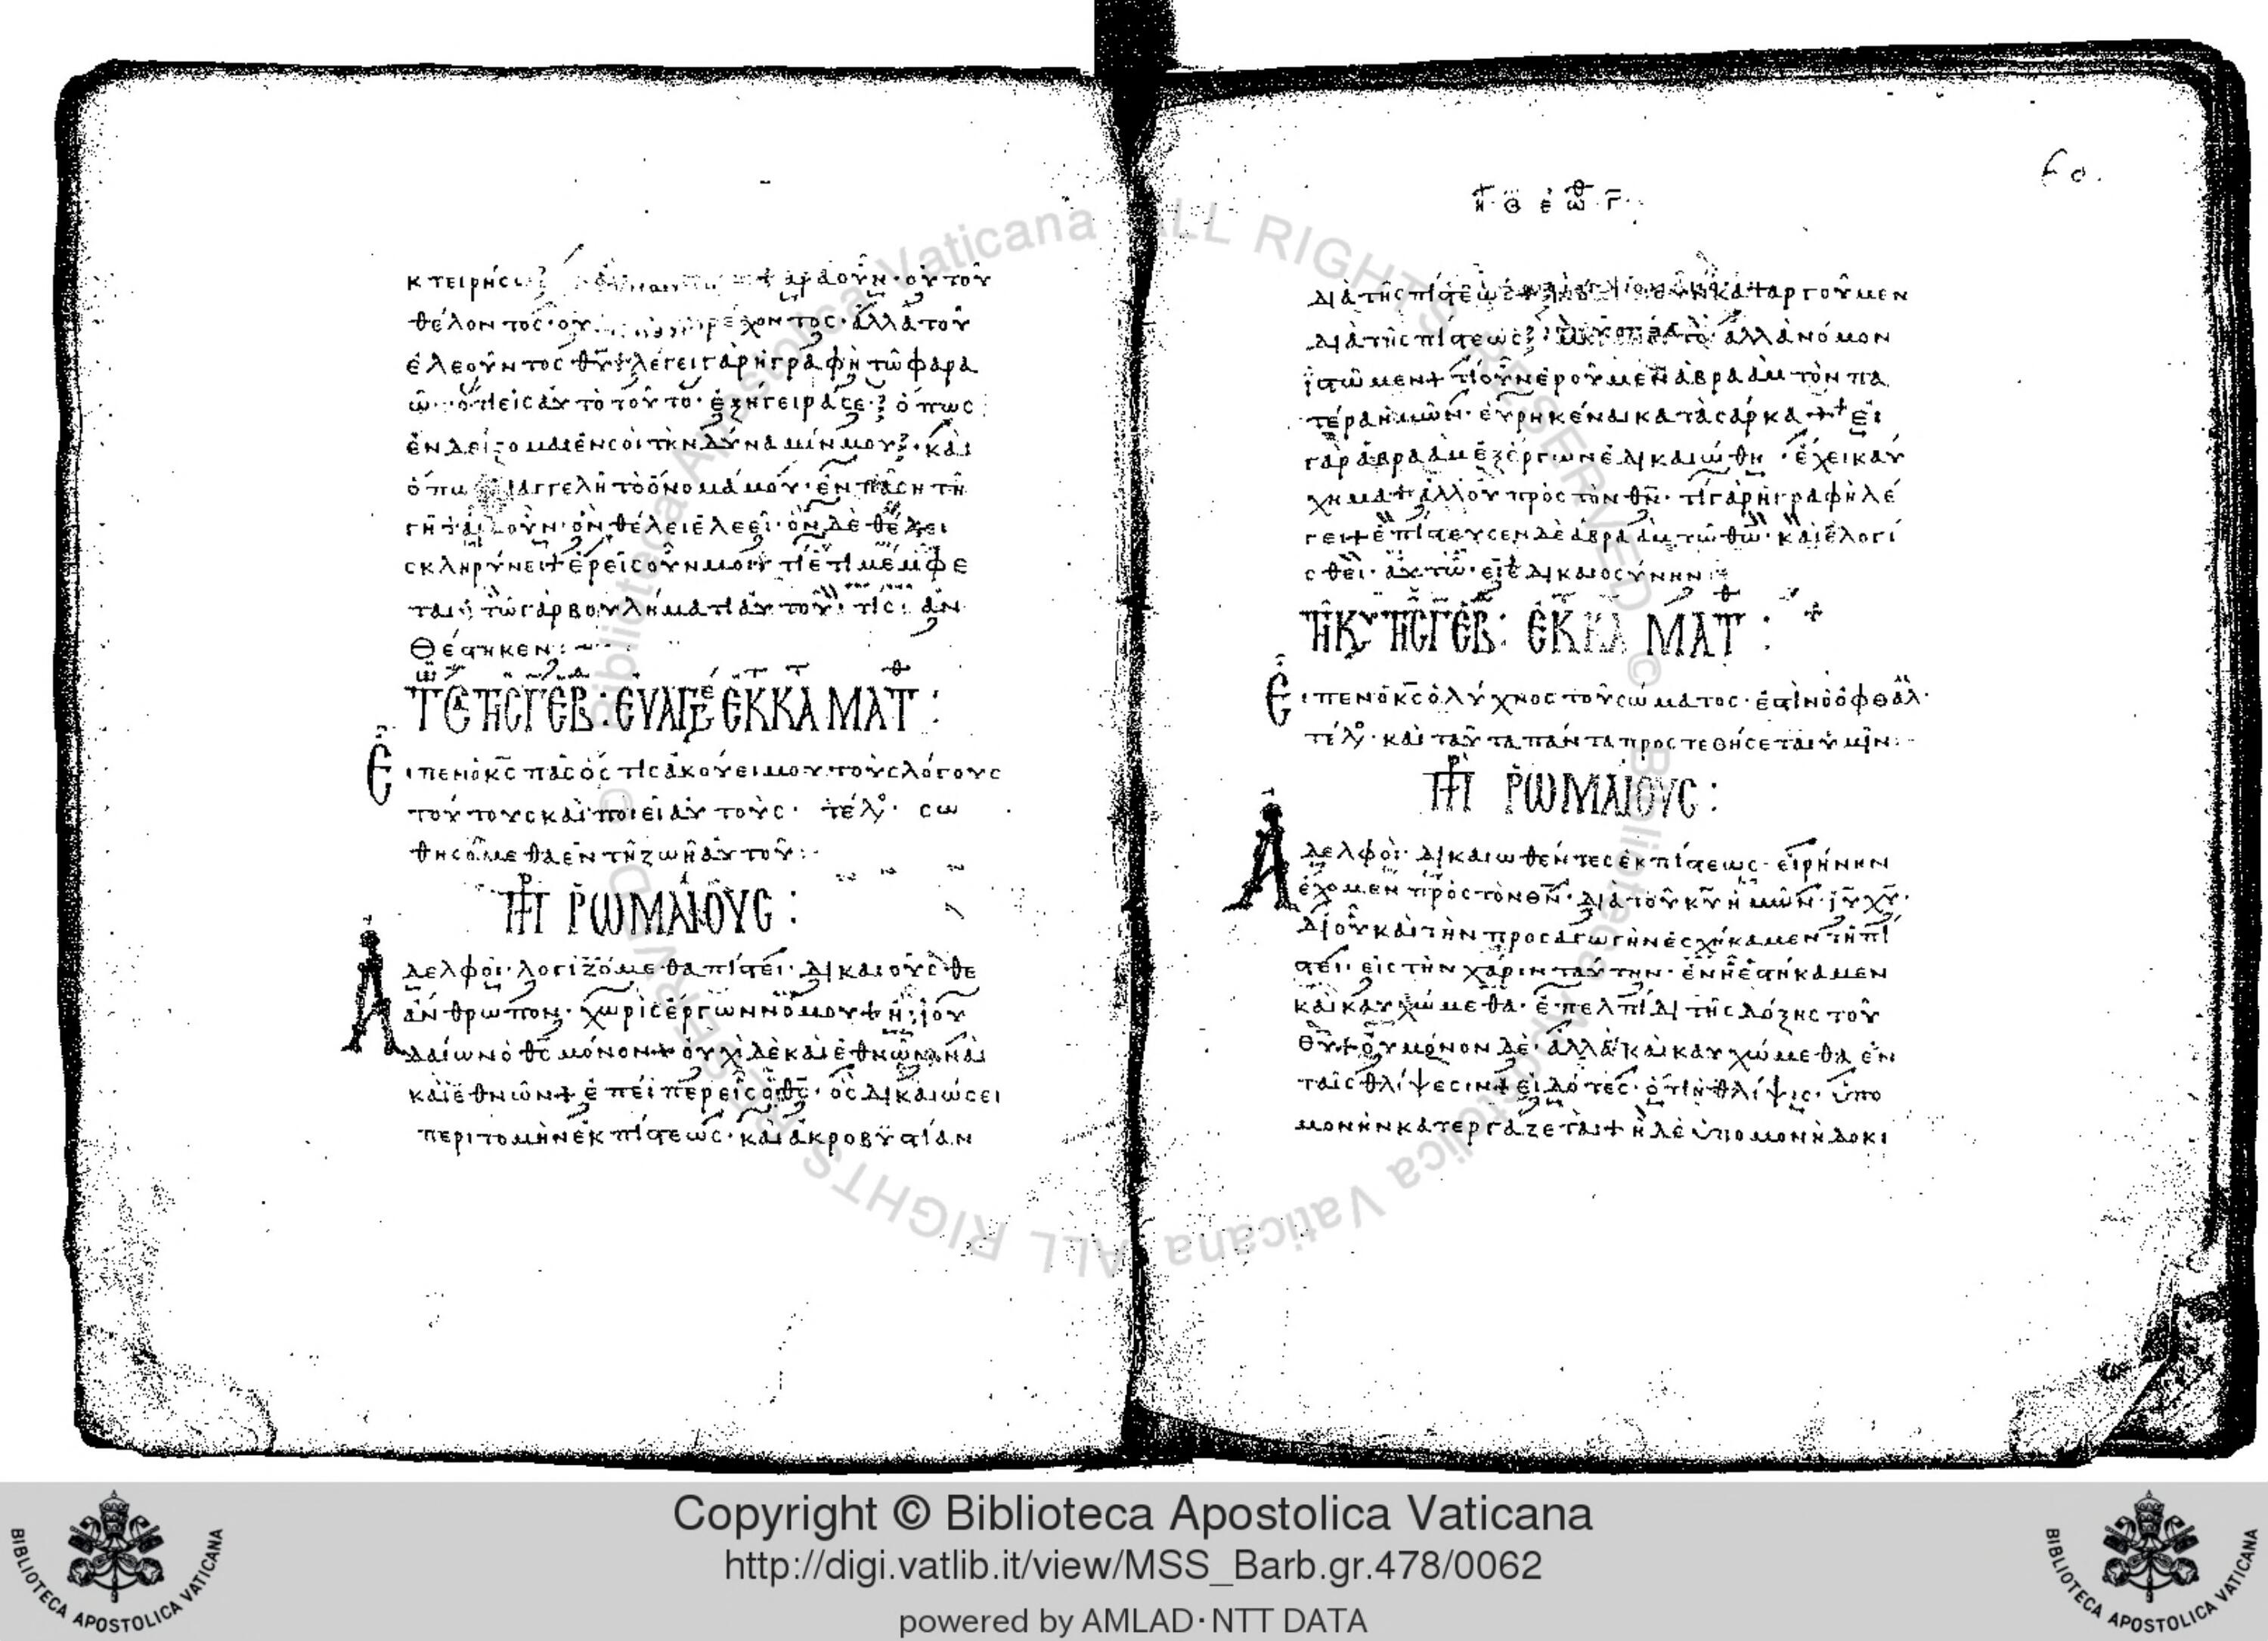 κτειρήσω ἄρα οὖν · οὐ τοῦ
θέλοντος · οὐ τρέχοντος · ἀλλὰ τοῦ
ἐλεοῦντος θῡ + λέγει γὰρ ἡ γραφὴ τῶ φαρα
ὼ · ὅτι εἰς αὐτὸ τοῦτο · ἐξήγειρά σε · ὅπως
ἐνδείξομαι ἐν σοὶ τὴν δύναμίν μου · καὶ
ὅπω αγγελῆ τὸ ὄνομά μου · ἐν πάση τῆ
γῆ + ἄρα οὖν · ὃν θέλει ἐλεεῖ · ὃν δὲ θέλει
σκληρύνει + ἐρεῖς οὖν μοι · τί ἔτι μέμφε
ται · τῶ γὰρ βουλήματι αὐτοῦ · τίς · ἀν
θέστηκεν :
Τ ΣΑ ΤΗΣ Γ ΕΒ : ΕΥΑΓΓΕ ΕΚ ΚΑ ΜΑΤ :
Εἶπεν ὁ κ̄ς πᾶς ὅστις ἀκούει μου τοὺς λόγους
τούτους καὶ ποιεῖ αὐτούς · τέλ · σω
θησόμεθα ἐν τῆ ζωῆ αὐτοῦ :
ΠΡ ΡΩΜΑΙΟΥΣ :
Ἀδελφοὶ · λογιζόμεθα πίστει · δικαιοῦσθε
ἄνθρωπον · χωρὶς ἔργων νόμου + ἢ ἰου
δαίων ὁ θ̄ς μόνον + οὐχὶ δὲ καὶ ἐθνῶν · ναὶ
καὶ ἐθνῶν + ἐπείπερ εἷς ὁ θ̄ς · ὃς δικαιώσει
περιτομὴν ἐκ πίστεως · καὶ ἀκροβυστίαν
60.
διὰ τῆς πίστεως καταργοῦμεν
διὰ τῆς πίστεως · μὴ γένοιτο · ἀλλὰ νόμον
ἱστῶμεν + τί οὖν ἐροῦμεν ἀβραὰμ τὸν πα
τέρα ἡμῶν · εὑρηκέναι κατὰ σάρκα + εἰ
γὰρ ἀβραὰμ ἐξ ἔργων ἐδικαιώθη · ἔχει καύ
χημα + ἀλλ' οὐ πρὸς τὸν θν̄ · τί γὰρ ἡ γραφὴ λέ
γει + ἐπίστευσεν δὲ ἀβραὰμ τῶ θῶ · καὶ ἐλογί
σθει · αὐτῶ · εἰς δικαιοσύνην :
ΤΗ ΚΥ ΤΗΣ Γ ΕΒ : ΕΚ ΚΑ ΜΑΤ :
Εἶπεν ὁ κ̄ς ὁ λύχνος τοῦ σώματος · ἐστὶν ὁ ὀφθαλ ·
τέλ · καὶ ταῦτα πάντα προστεθήσεται ὑμῖν :
ΠΡ ΡΩΜΑΙΟΥΣ :
Ἀδελφοὶ · δικαιωθέντες ἐκ πίστεως · εἰρήνην
ἔχομεν πρὸς τὸν θν̄ · διὰ τοῦ κῡ ἡμῶν · ῑῡ χῡ ·
δι' οὗ καὶ τὴν προσαγωγὴν ἐσχήκαμεν τῆ πί
στει · εἰς τὴν χάριν ταύτην · ἐν ἧ ἑστήκαμεν
καὶ καυχώμεθα · ἐπ' ἐλπίδι τῆς δόξης τοῦ
θῡ + οὐ μόνον δὲ · ἀλλὰ καὶ καυχώμεθα ἐν
ταῖς θλίψεσιν + εἰδότες · ὅτι ἡ θλίψις · ὑπο
μονὴν κατεργάζεται + ἡ δὲ ὑπομονὴ δοκι
Copyright © Biblioteca Apostolica Vaticana
http://digi.vatlib.it/view/MSS_Barb.gr.478/0062
powered by AMLAD·NTT DATA
BIBLIOTECA APOSTOLICA VATICANA
BIBLIOTECA APOSTOLICA VATICANA